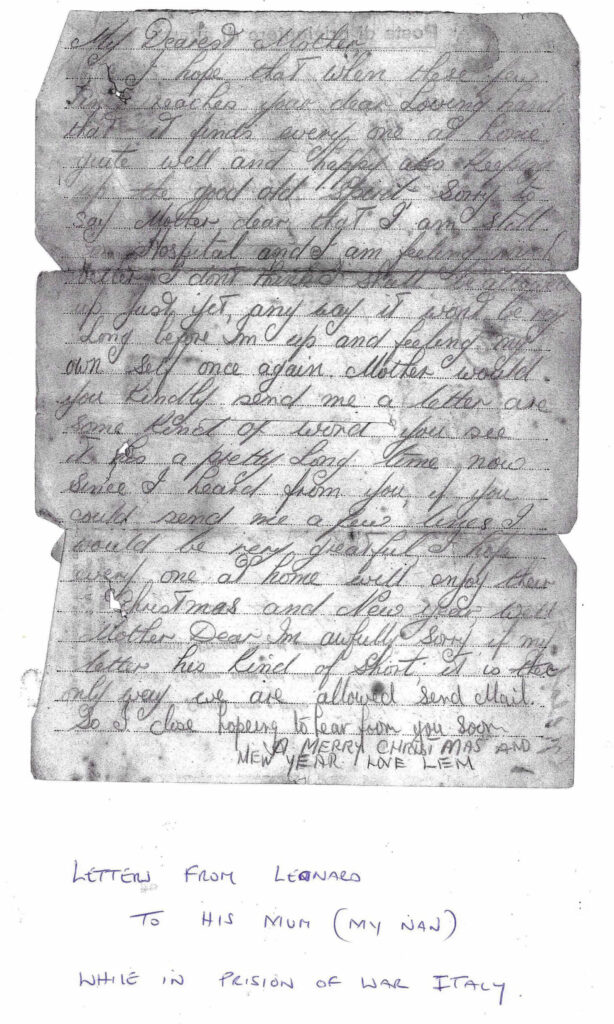 My Dearest Mother
I hope that when these few
lines reaches your dear loving hands
that it finds every one at home
quite well and happy also keeping
up the good old spirit Sorry to
say Mother dear that I am still
in Hospital and I am feeling much
better I dont think I shall be
up just yet, any way it wont be very
long before Im up and feeling my
own self once again. Mother would
you kindly send me a letter are
some kind of word you see
it his a pretty long time now
since I heard from you if you
could send me a few lines I
would be very greatful I hope
every one at home will enjoy their
Christmas and New Year well
Mother Dear Im awfully sorry if my
letter his kind of short it is the
only way we are allowed send Mail.
So I close hopeing to hear from you soon
A MERRY CHRISTMAS AND
NEW YEAR LOVE LEM
LETTERS FROM LEONARD
TO HIS MUM (MY NAN)
WHILE IN PRISION OF WAR ITALY.